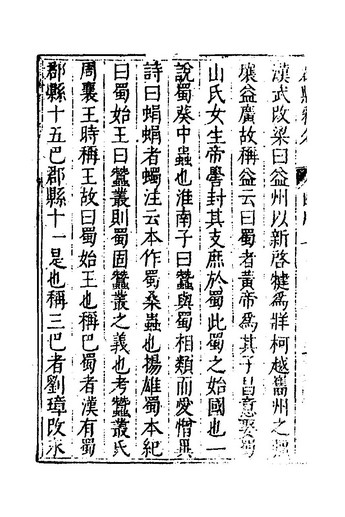 漢武改梁曰益州以新啓犍爲牂柯越巂州之疆
壤益廣故稱益云曰蜀者黃帝爲其子昌意娶蜀
山氏女生帝嚳封其支庶於蜀此蜀之始國也一
說蜀葵中蟲也淮南子曰蠶與蜀相類而愛憎異
詩曰蜎蜎者蠋注云本作蜀桑蟲也揚雄蜀本紀
曰蜀始王曰蠶叢則蜀固蠶叢之義也考蠶叢氏
周襄王時稱王故曰蜀始王也稱巴蜀者漢有蜀
郡縣十五巴郡縣十一是也稱三巴者劉璋改永